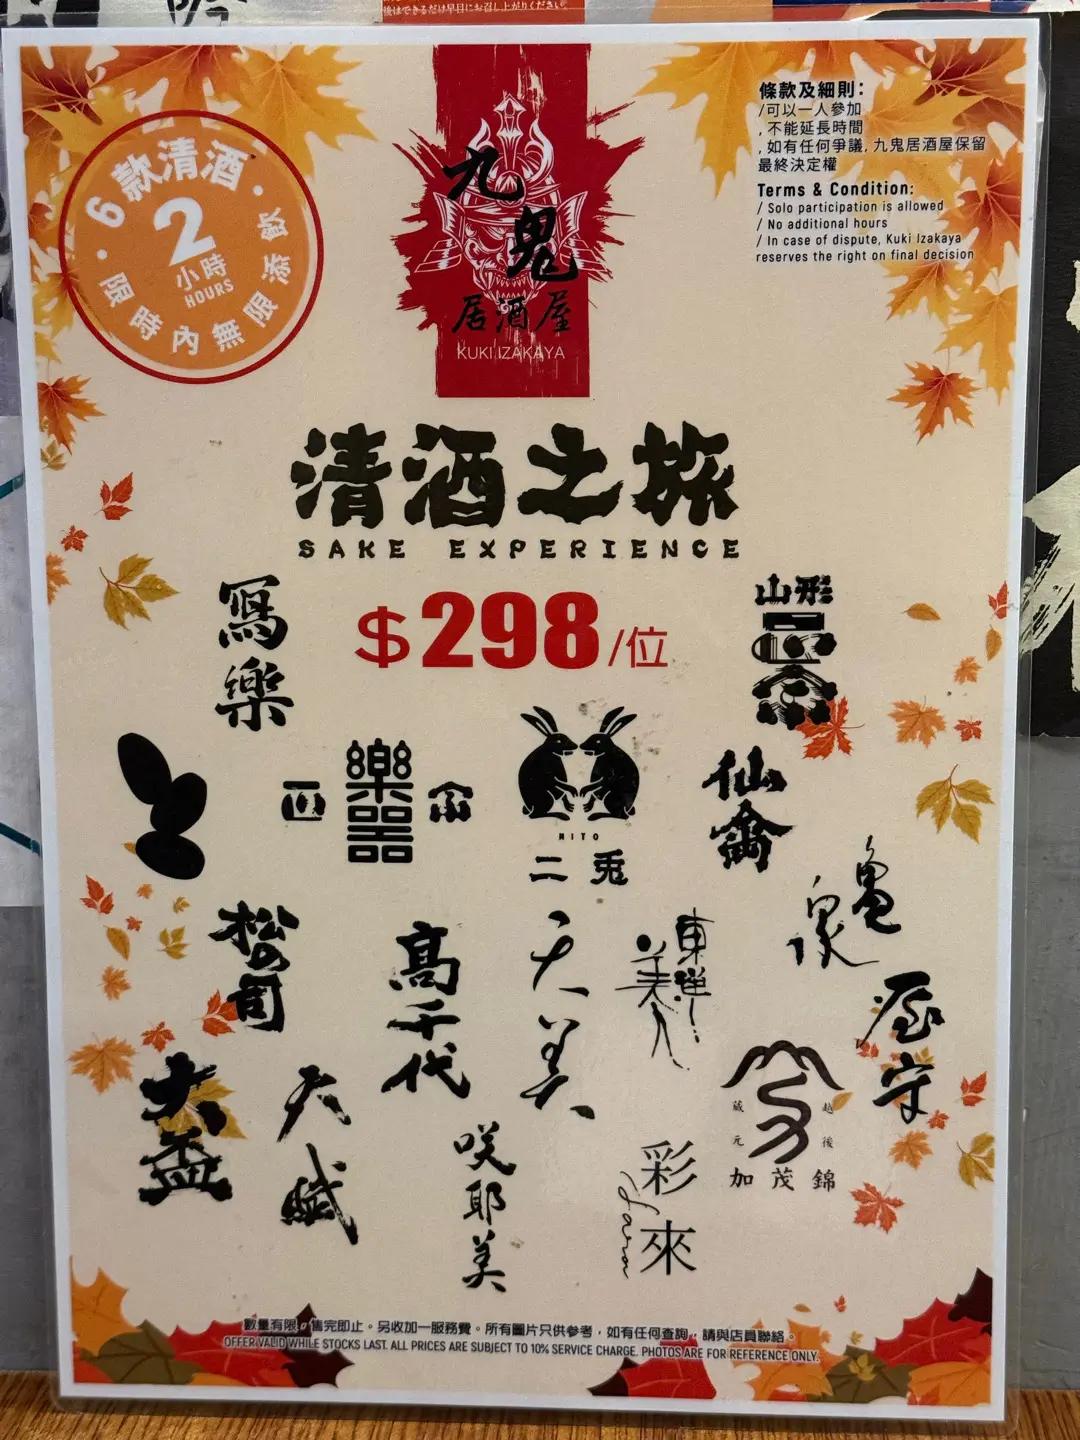 後はできるだけ早目にお召し上がりください。
6款清酒
2
小時
HOURS
限時內無限添飲
九鬼
居酒屋
KUKI IZAKAYA
條款及細則：
/可以一人參加
, 不能延長時間
, 如有任何爭議, 九鬼居酒屋保留
最終決定權
Terms & Condition:
/ Solo participation is allowed
/ No additional hours
/ In case of dispute, Kuki Izakaya
reserves the right on final decision
清酒之旅
SAKE EXPERIENCE
$298/位
寫樂
山形
正宗
樂器
正宗
NITO
二兎
仙禽
亀泉
松の司
高千代
天美
東洋美人
屋守
大盃
天賦
咲耶美
彩來
Sara
蔵元
越後
加茂錦
數量有限，售完即止。另收加一服務費。所有圖片只供參考，如有任何查詢，請與店員聯絡。
OFFER VALID WHILE STOCKS LAST. ALL PRICES ARE SUBJECT TO 10% SERVICE CHARGE. PHOTOS ARE FOR REFERENCE ONLY.